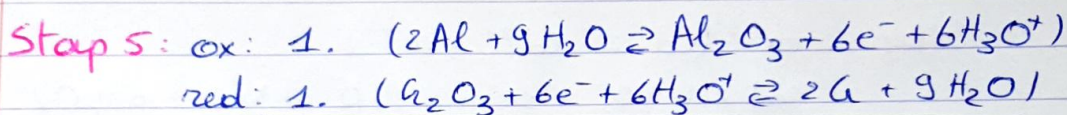 Stap 5: ox: 1. (2Al + 9 H₂O ⇄ Al₂O₃ + 6e⁻ + 6H₃O⁺)
red: 1. (G₂O₃ + 6e⁻ + 6H₃O⁺ ⇄ 2G + 9 H₂O)